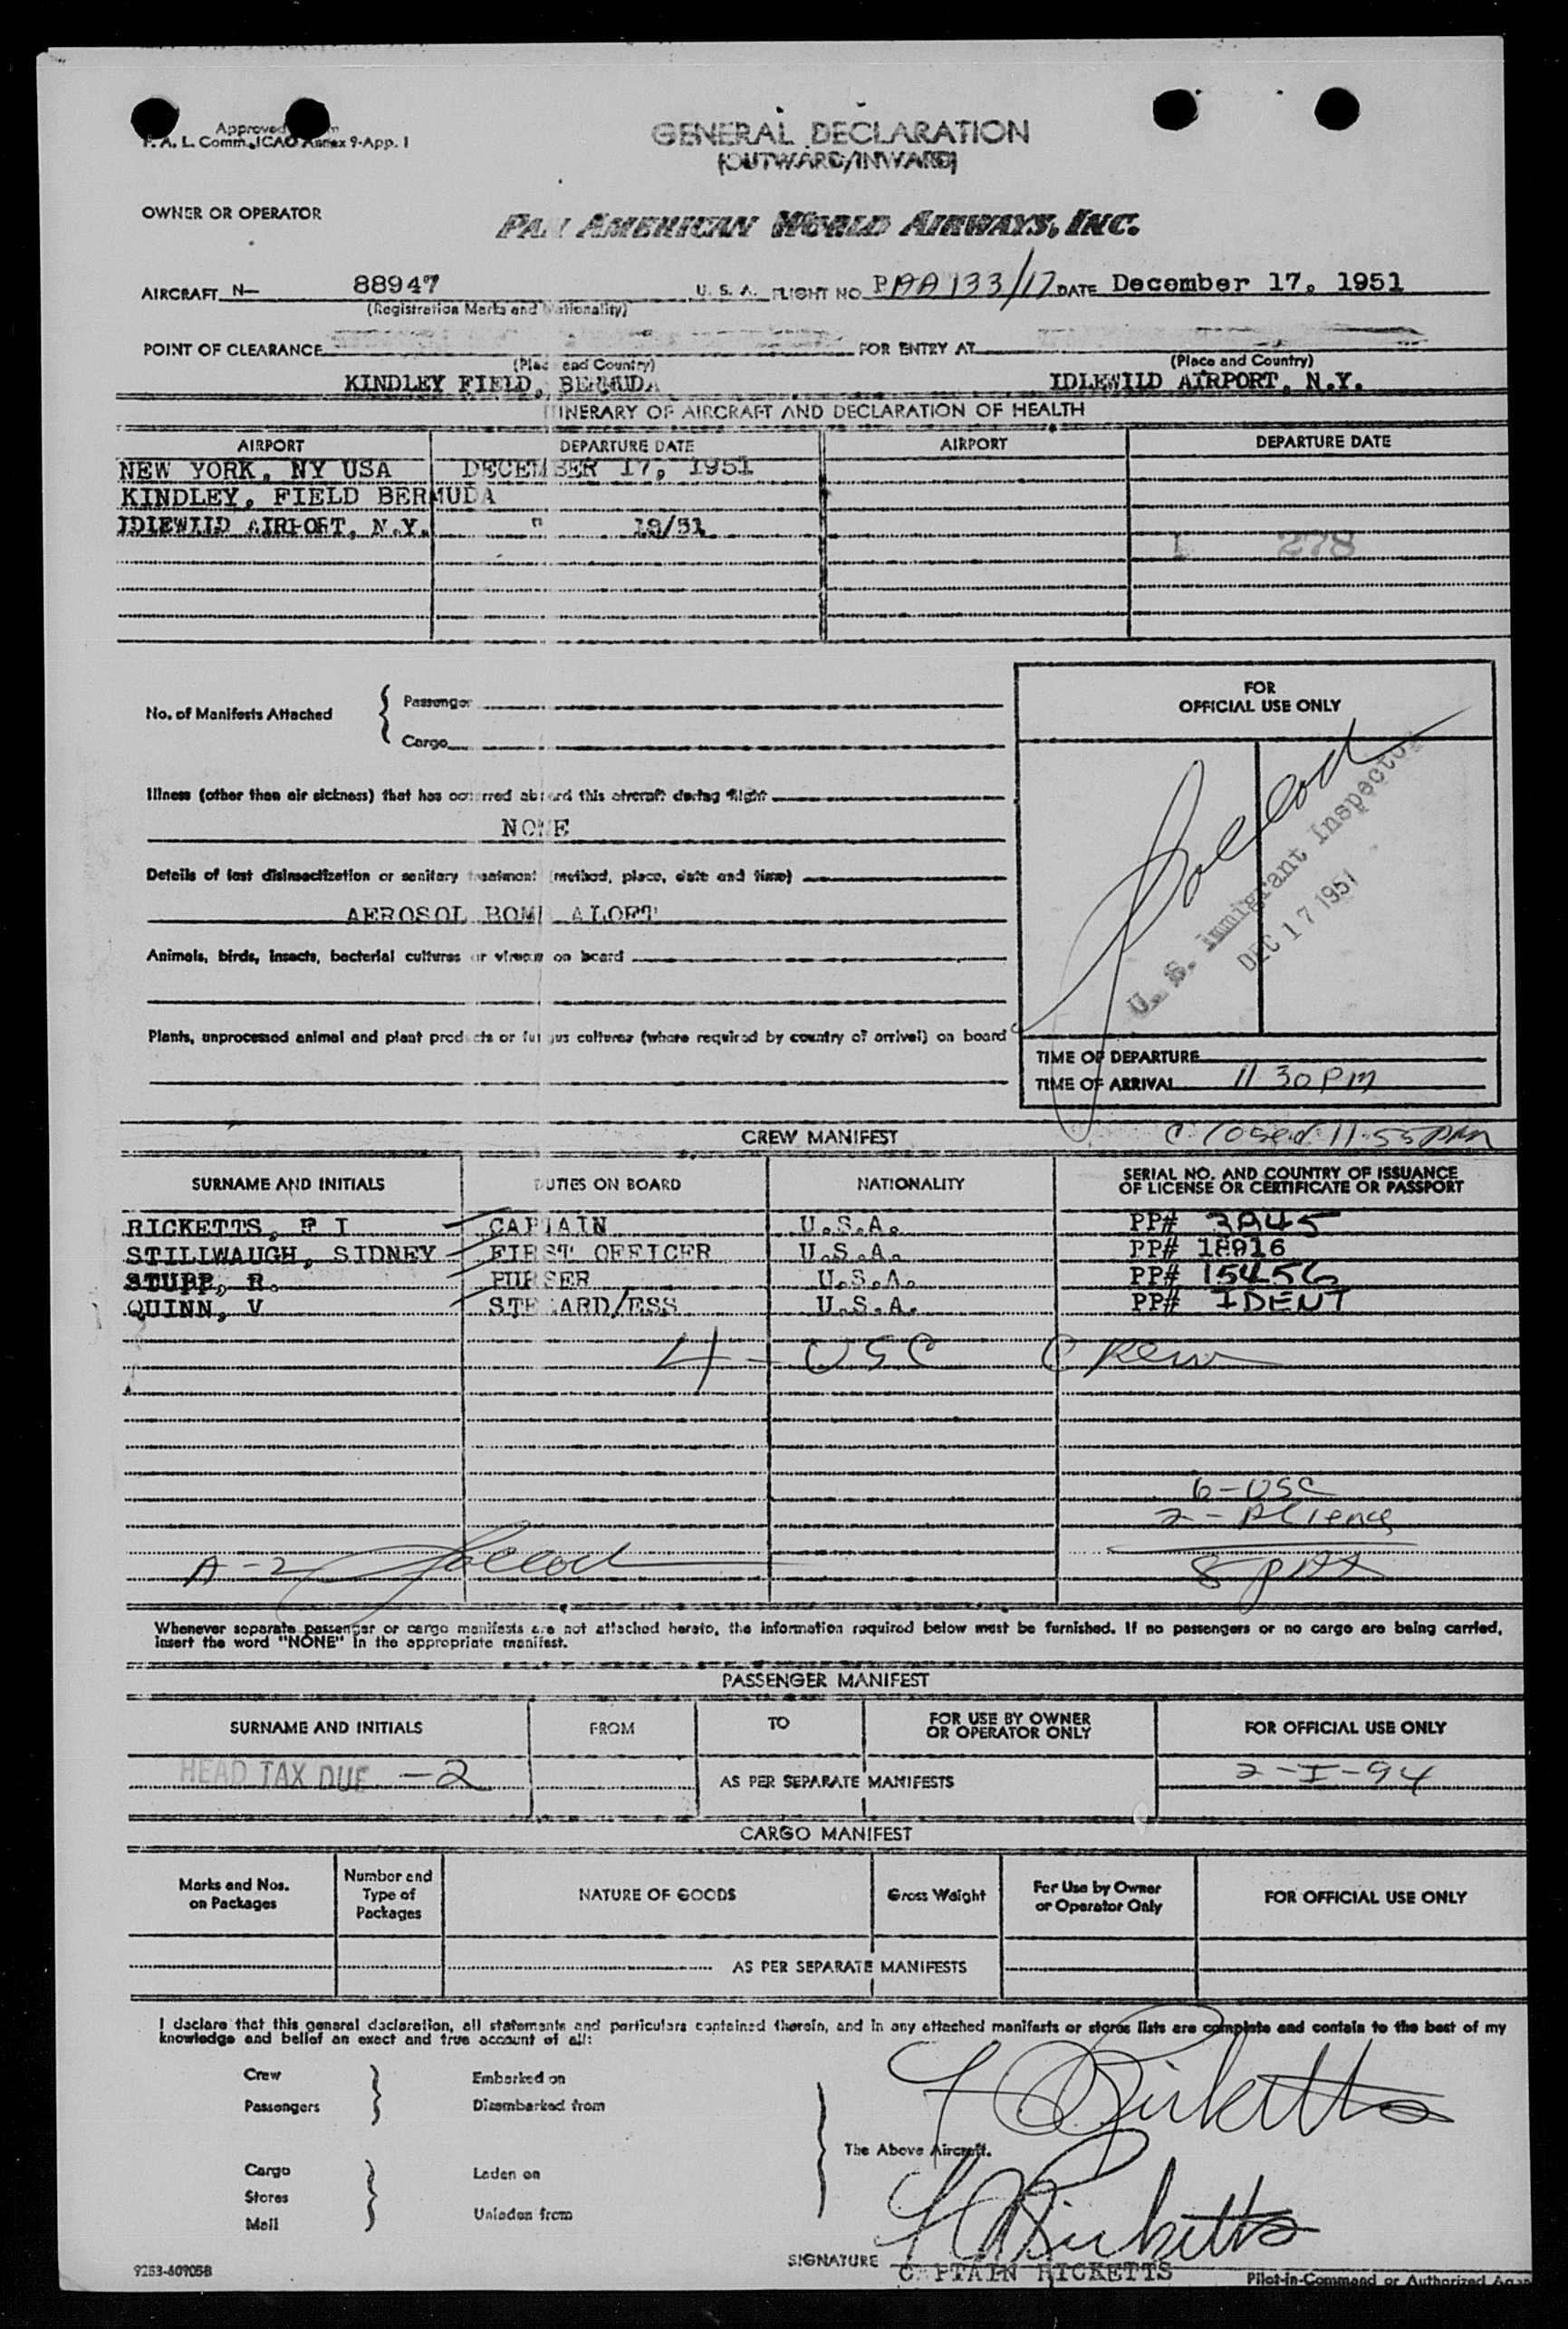 Approved
F. A. L. Comm. ICAO Annex 9-App. I
GENERAL DECLARATION
(OUTWARD/INWARD)
OWNER OR OPERATOR
PAN AMERICAN WORLD AIRWAYS, INC.
AIRCRAFT N- 88947 U. S. A. FLIGHT NO PAA 133/17 DATE December 17, 1951
(Registration Marks and Nationality)
POINT OF CLEARANCE FOR ENTRY AT
(Place and Country) (Place and Country)
KINDLEY FIELD, BERMUDA IDLEWILD AIRPORT, N.Y.
ITINERARY OF AIRCRAFT AND DECLARATION OF HEALTH
AIRPORT DEPARTURE DATE AIRPORT DEPARTURE DATE
NEW YORK, NY USA DECEMBER 17, 1951
KINDLEY, FIELD BERMUDA
IDLEWILD AIRPORT, N.Y. " 18/51
278
FOR
OFFICIAL USE ONLY
No. of Manifests Attached
Passenger
Cargo
Illness (other than air sickness) that has occurred aboard this aircraft during flight
NONE
Details of last disinsectization or sanitary treatment (method, place, date and time)
AEROSOL BOMB ALOFT
U. S. Immigrant Inspector
DEC 17 1951
Animals, birds, insects, bacterial cultures or viruses on board
Plants, unprocessed animal and plant products or fungus cultures (where required by country of arrival) on board
TIME OF DEPARTURE
TIME OF ARRIVAL 11 30 PM
CREW MANIFEST
Closed 11:55 PM
SURNAME AND INITIALS DUTIES ON BOARD NATIONALITY SERIAL NO. AND COUNTRY OF ISSUANCE
OF LICENSE OR CERTIFICATE OR PASSPORT
RICKETTS, F I CAPTAIN U.S.A. PP# 3845
STILLWAUGH, SIDNEY FIRST OFFICER U.S.A. PP# 18916
STUPP, R. PURSER U.S.A. PP# 15456
QUINN, V STEWARD/ESS U.S.A. PP# IDENT
4 - USC Crew
6-USC
2 - Aliens
A-2
8 pax
Whenever separate passenger or cargo manifests are not attached hereto, the information required below must be furnished. If no passengers or no cargo are being carried,
insert the word "NONE" in the appropriate manifest.
PASSENGER MANIFEST
SURNAME AND INITIALS FROM TO FOR USE BY OWNER
OR OPERATOR ONLY FOR OFFICIAL USE ONLY
HEAD TAX DUE -2 AS PER SEPARATE MANIFESTS 2-I-94
CARGO MANIFEST
Marks and Nos.
on Packages
Number and
Type of
Packages
NATURE OF GOODS
Gross Weight
For Use by Owner
or Operator Only
FOR OFFICIAL USE ONLY
AS PER SEPARATE MANIFESTS
I declare that this general declaration, all statements and particulars contained therein, and in any attached manifests or stores lists are complete and contain to the best of my
knowledge and belief an exact and true account of all:
Crew Embarked on
Passengers Disembarked from
The Above Aircraft.
Cargo Laden on
Stores
Mail Unladen from
SIGNATURE
CAPTAIN RICKETTS
Pilot-in-Command or Authorized Agent
9253-60905B